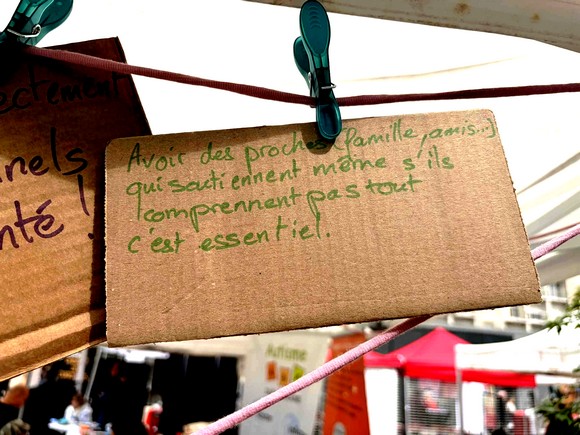 ectement
nnels
nté !
Avoir des proches (famille, amis...)
qui soutiennent même s'ils
comprennent pas tout
c'est essentiel.